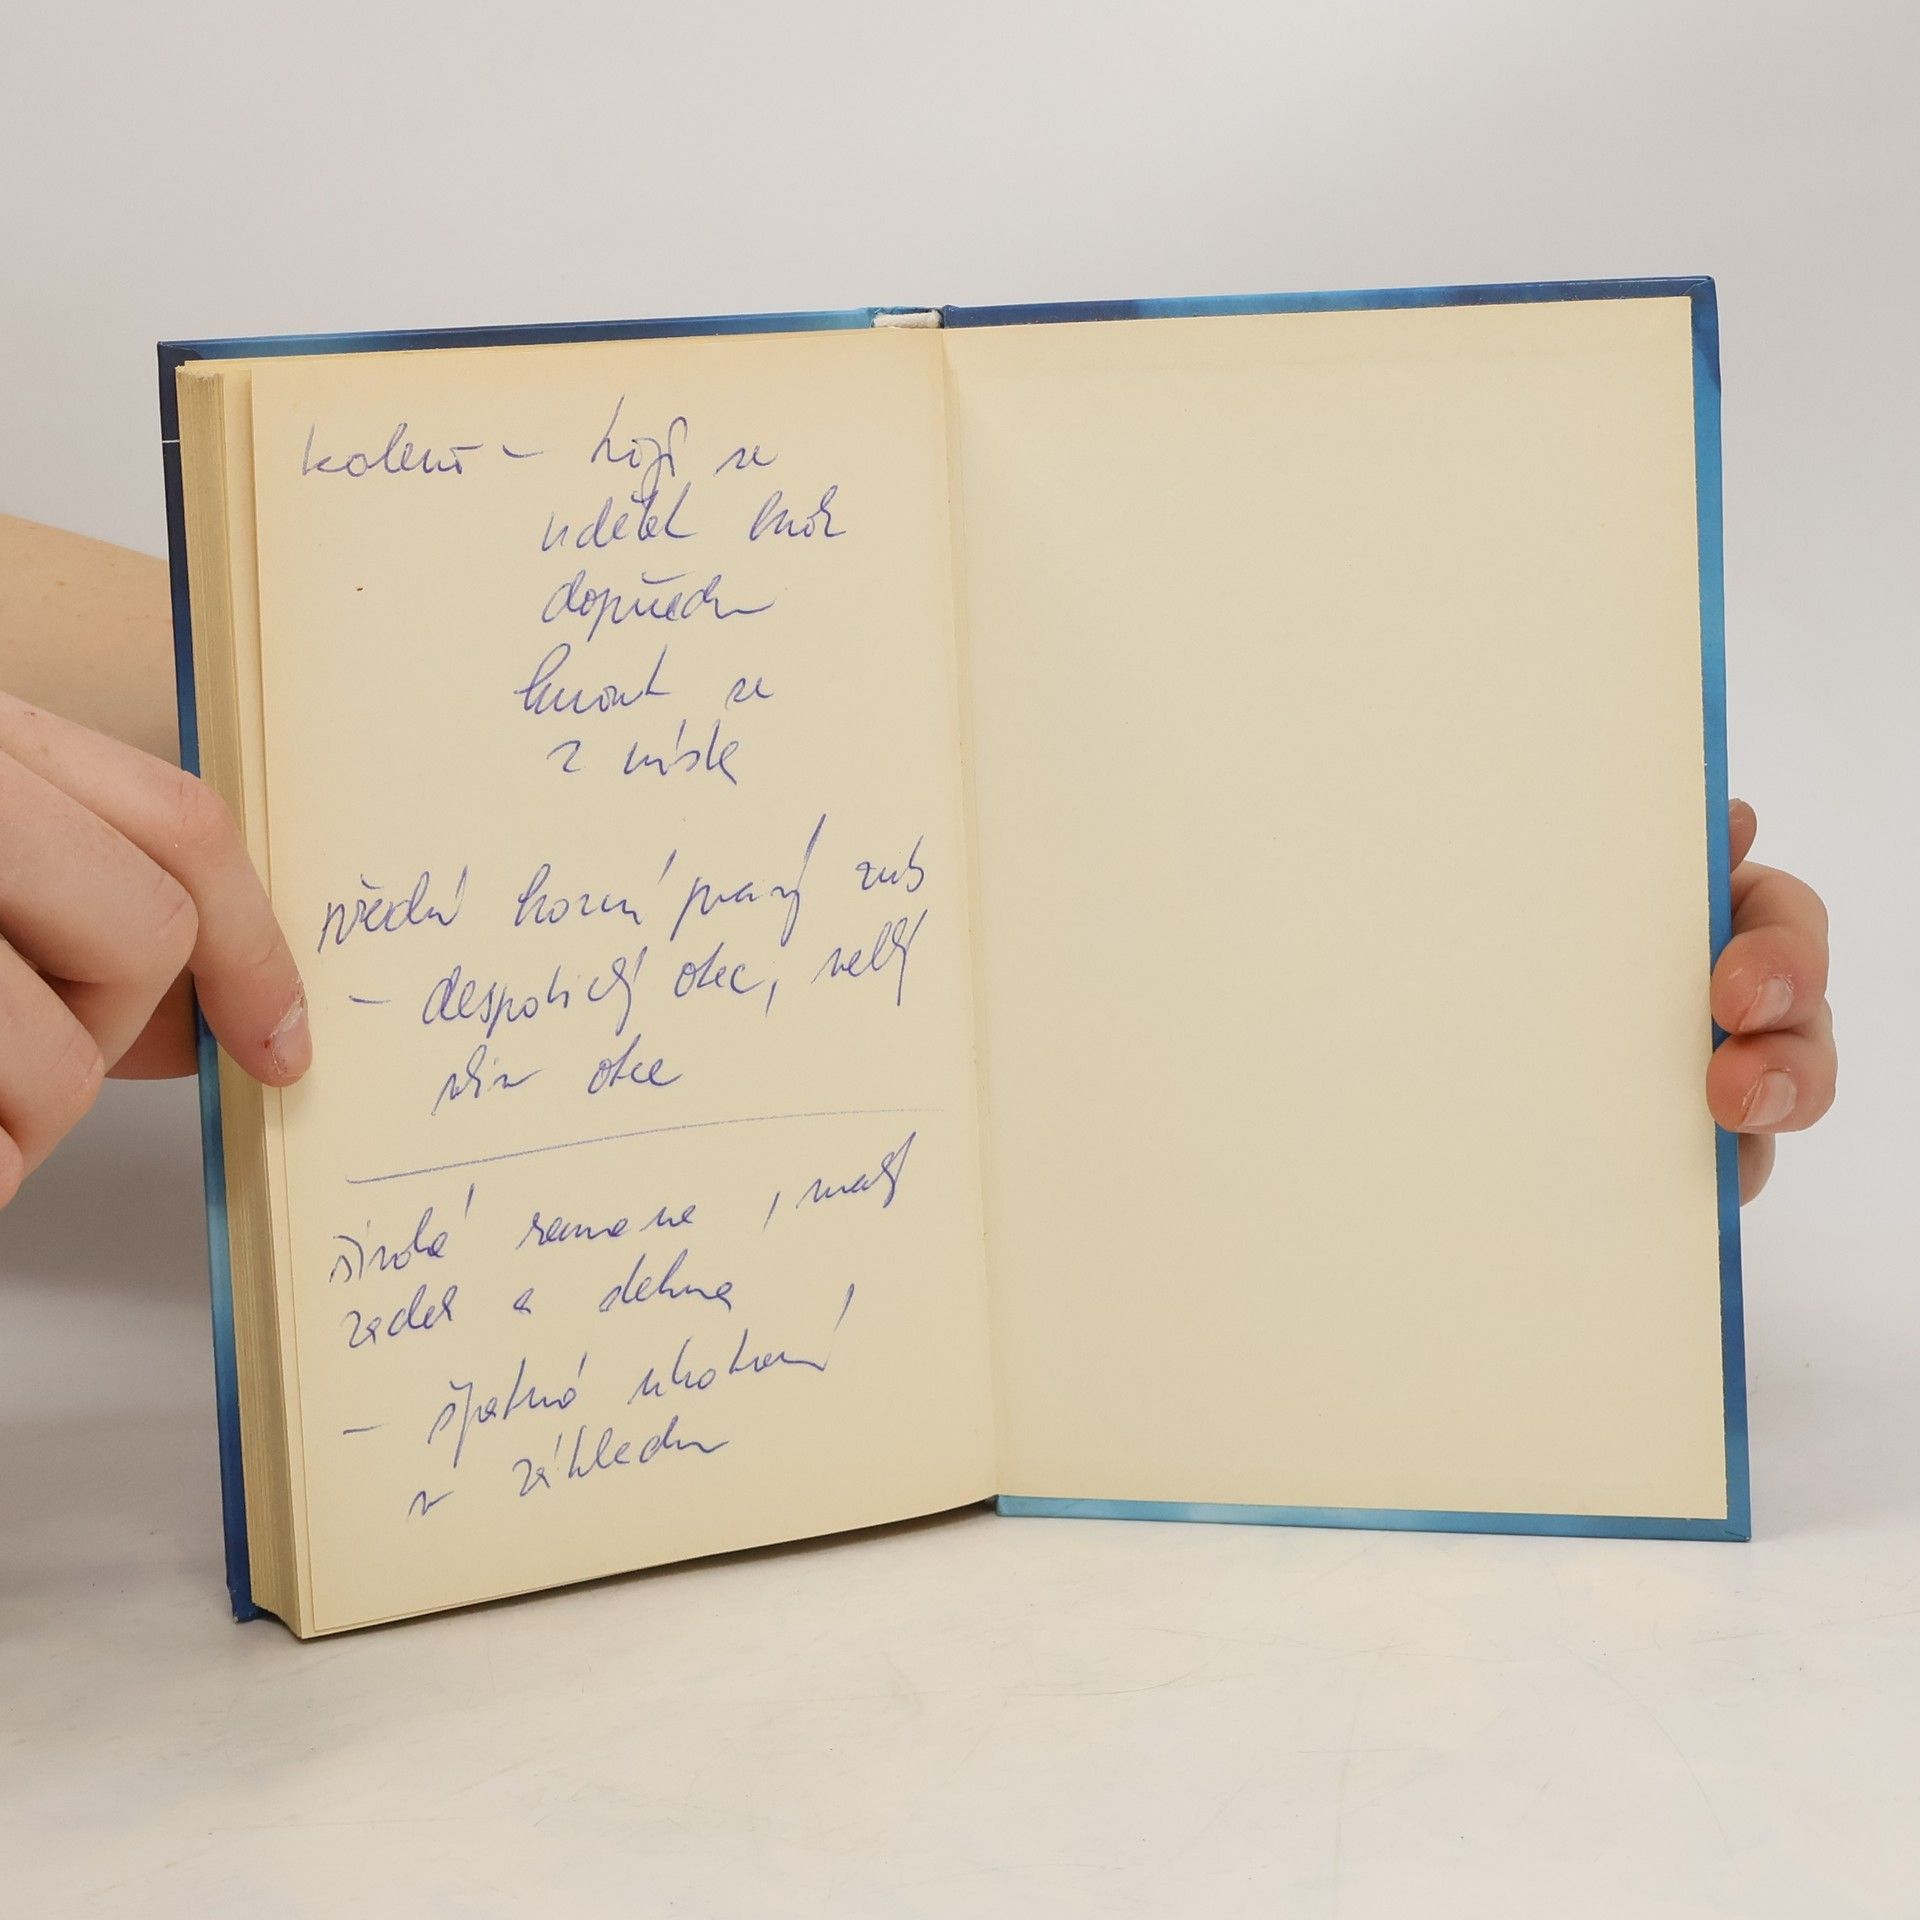 koleno - bojí se
udělat krok
dopředu
hnout se
z místa
přední horní pravý zub
- despotický otec, velký
vliv otce
široká ramena, malý
zadek a stehna
- špatné ukotvení
v základu